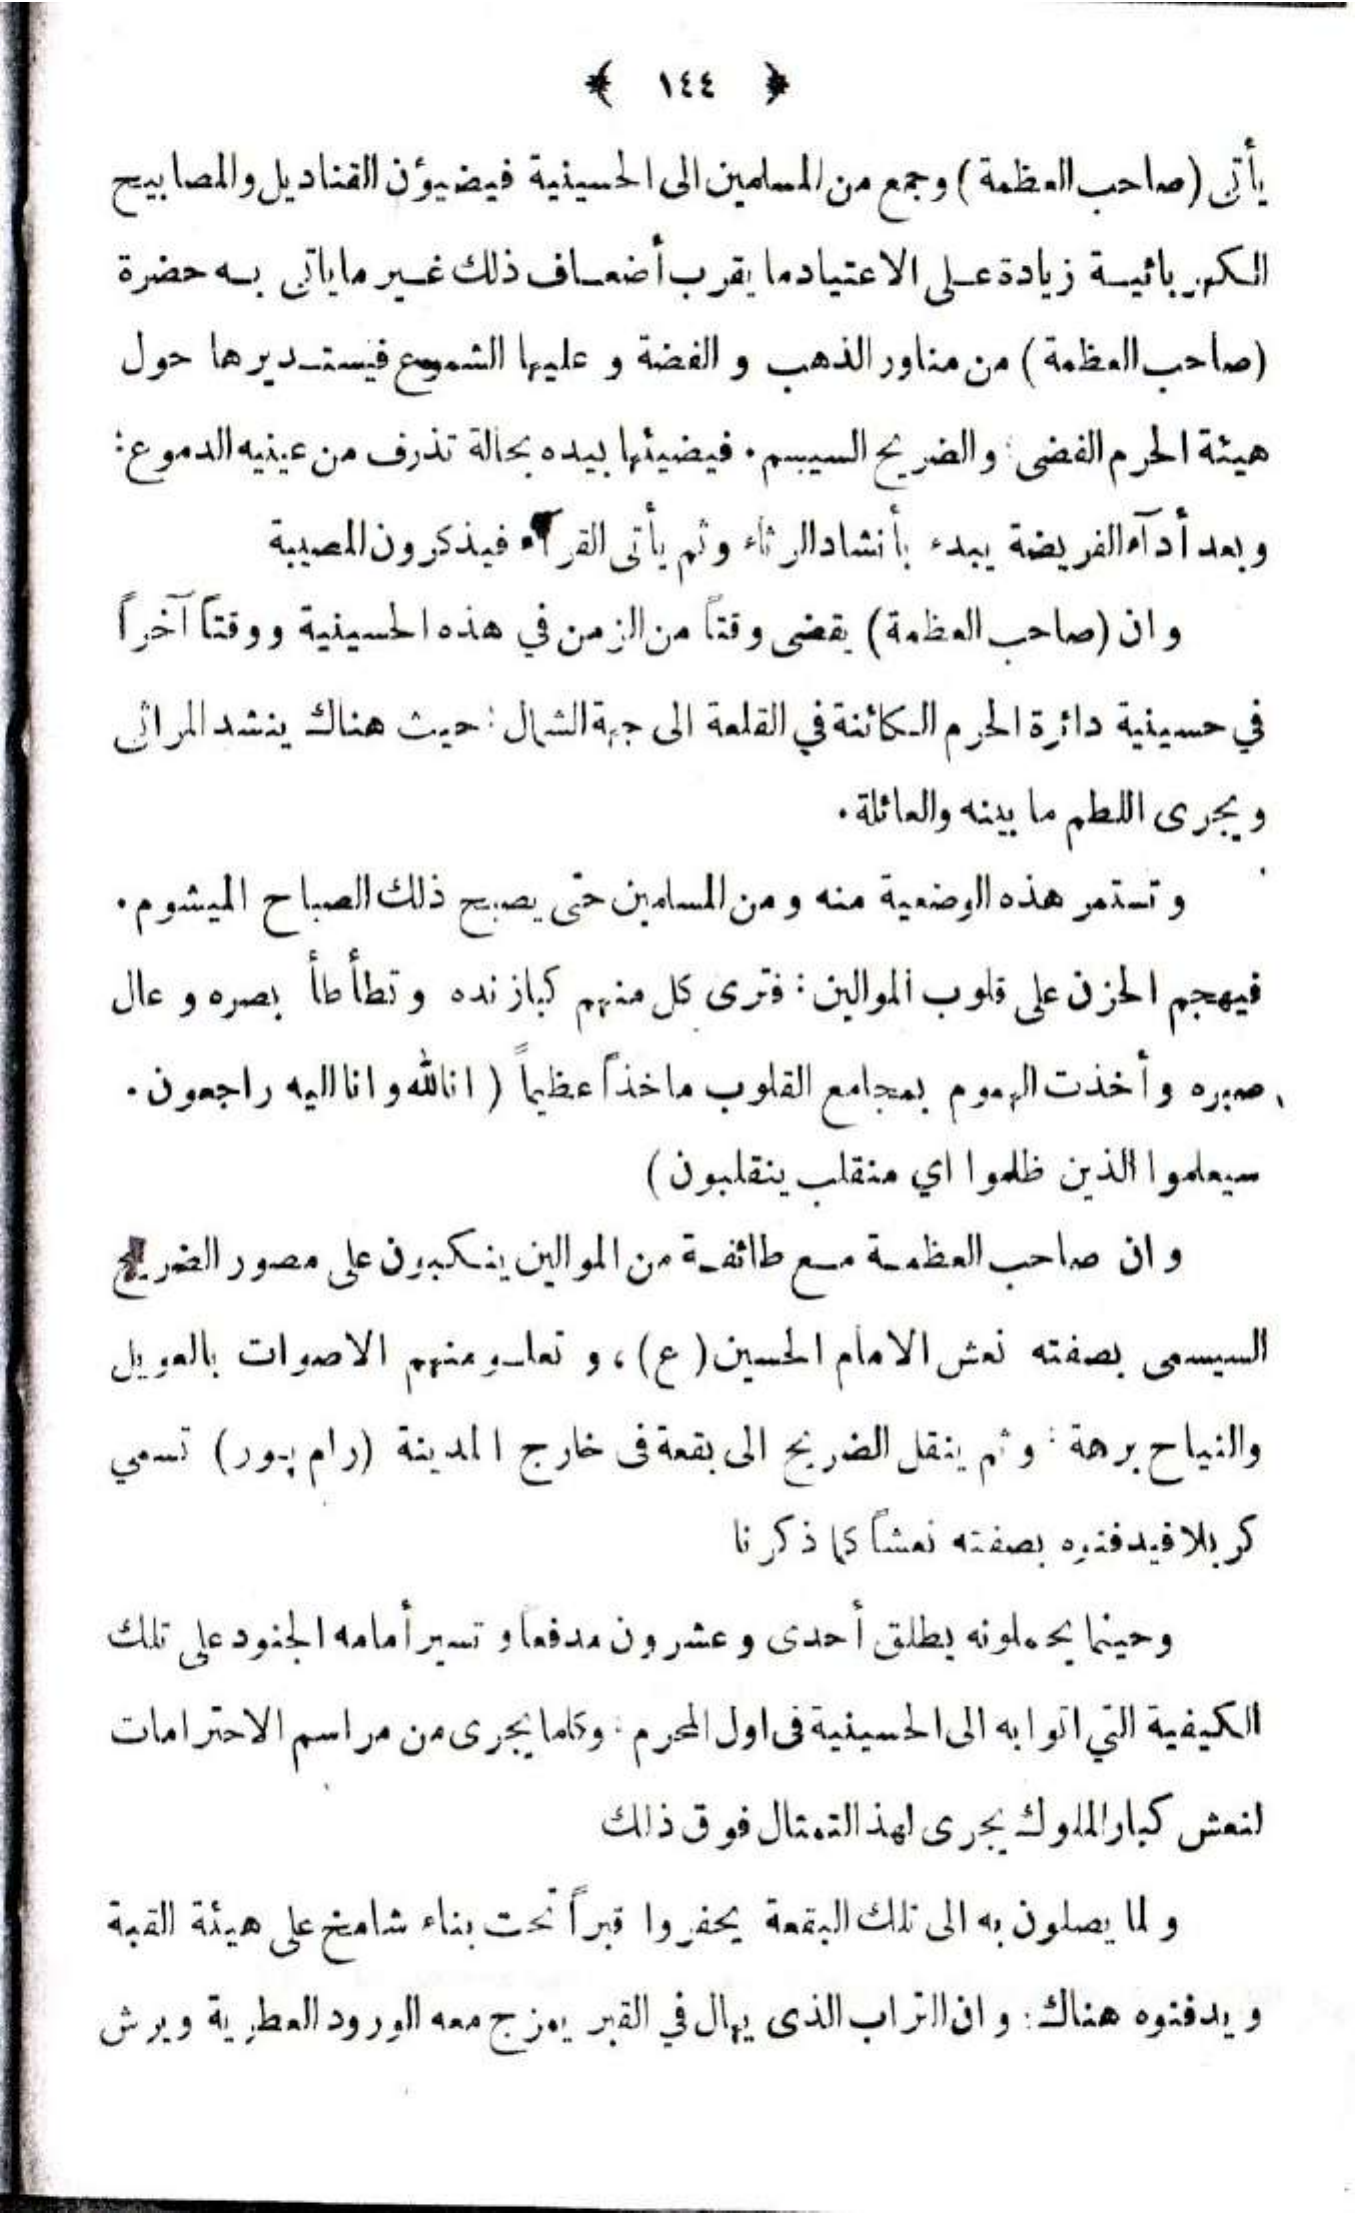 ﴿ ١٤٤ ﴾
يأتى (صاحب العظمة) وجمع من المسلمين الى الحسينية فيضيؤن القناديل والمصابيح
الكهربائية زيادة على الاعتياد ما يقرب أضعاف ذلك غير ماياتى به حضرة
(صاحب العظمة) من مناور الذهب و الفضة و عليها الشموع فيستديرها حول
هيئة الحرم الفضى والضريح السيسم . فيضيئها بيده بحالة تذرف من عينيه الدموع:
وبعد أدآء الفريضة يبدء بأنشاد الرثاء وثم يأتى القرآء فيذكرون المصيبة
وان (صاحب العظمة) يقضى وقتاً من الزمن في هذه الحسينية ووقتاً آخراً
في حسينية دائرة الحرم الكائنة في القلعة الى جهة الشمال : حيث هناك ينشد المراثى
ويجرى اللطم ما بينه والعائلة .
وتستمر هذه الوضعية منه ومن المسلمين حتى يصبح ذلك الصباح الميشوم .
فيهجم الحزن على قلوب الموالين : فترى كل منهم كباز نده وتطأطأ بصره وعال
صبره وأخذت الهموم بمجامع القلوب ماخذاً عظيماً ( انالله وانا اليه راجعون .
سيعلموا الذين ظلموا اي منقلب ينقلبون )
وان صاحب العظمة مع طائفة من الموالين ينكبون على مصور الضريح
السيسمى بصفته نعش الامام الحسين (ع) ، و تعلو منهم الاصوات بالعويل
والنياح برهة : وثم ينقل الضريح الى بقعة فى خارج المدينة (رام پور) تسمي
كربلا فيدفنوه بصفته نعشاً كما ذكرنا
وحينما يحملونه يطلق أحدى وعشرون مدفعا و تسير أمامه الجنود على تلك
الكيفية التي اتوا به الى الحسينية فى اول المحرم : وكلما يجرى من مراسم الاحترامات
لنعش كبار الملوك يجرى لهذ التمثال فوق ذلك
ولما يصلون به الى تلك البقعة يحفروا قبراً تحت بناء شامخ على هيئة القبة
ويدفنوه هناك : وان التراب الذى يهال في القبر يمزج معه الورود العطرية ويرش